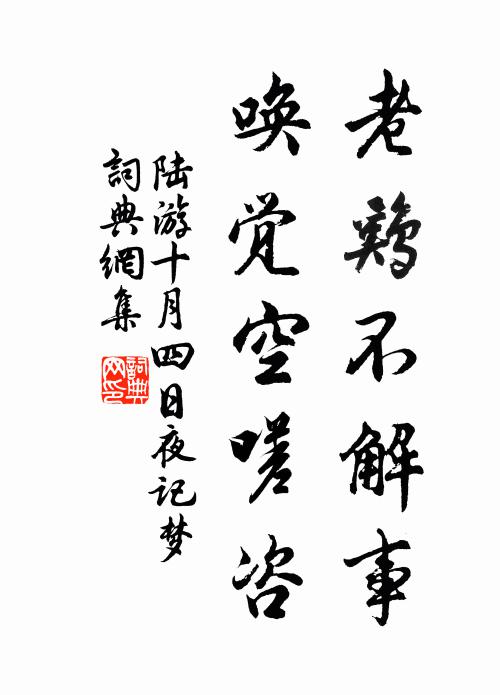 老鷄不解事
喚觉空嗟咨
陆游十月四日夜记梦
詞典網集
詞典网印